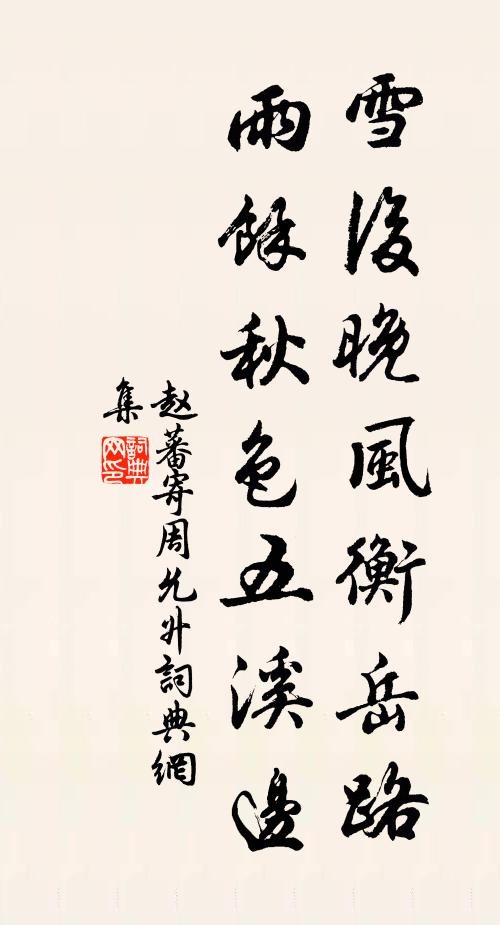 雪後晚風衡岳路
雨餘秋色五溪邊
赵蕃寄周允升詞典網
集
詞典
网印